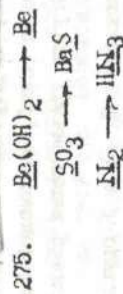 275. Be(OH)₂ ⟶ Be
SO₃ ⟶ BaS
N₂ ⟶ HN₃